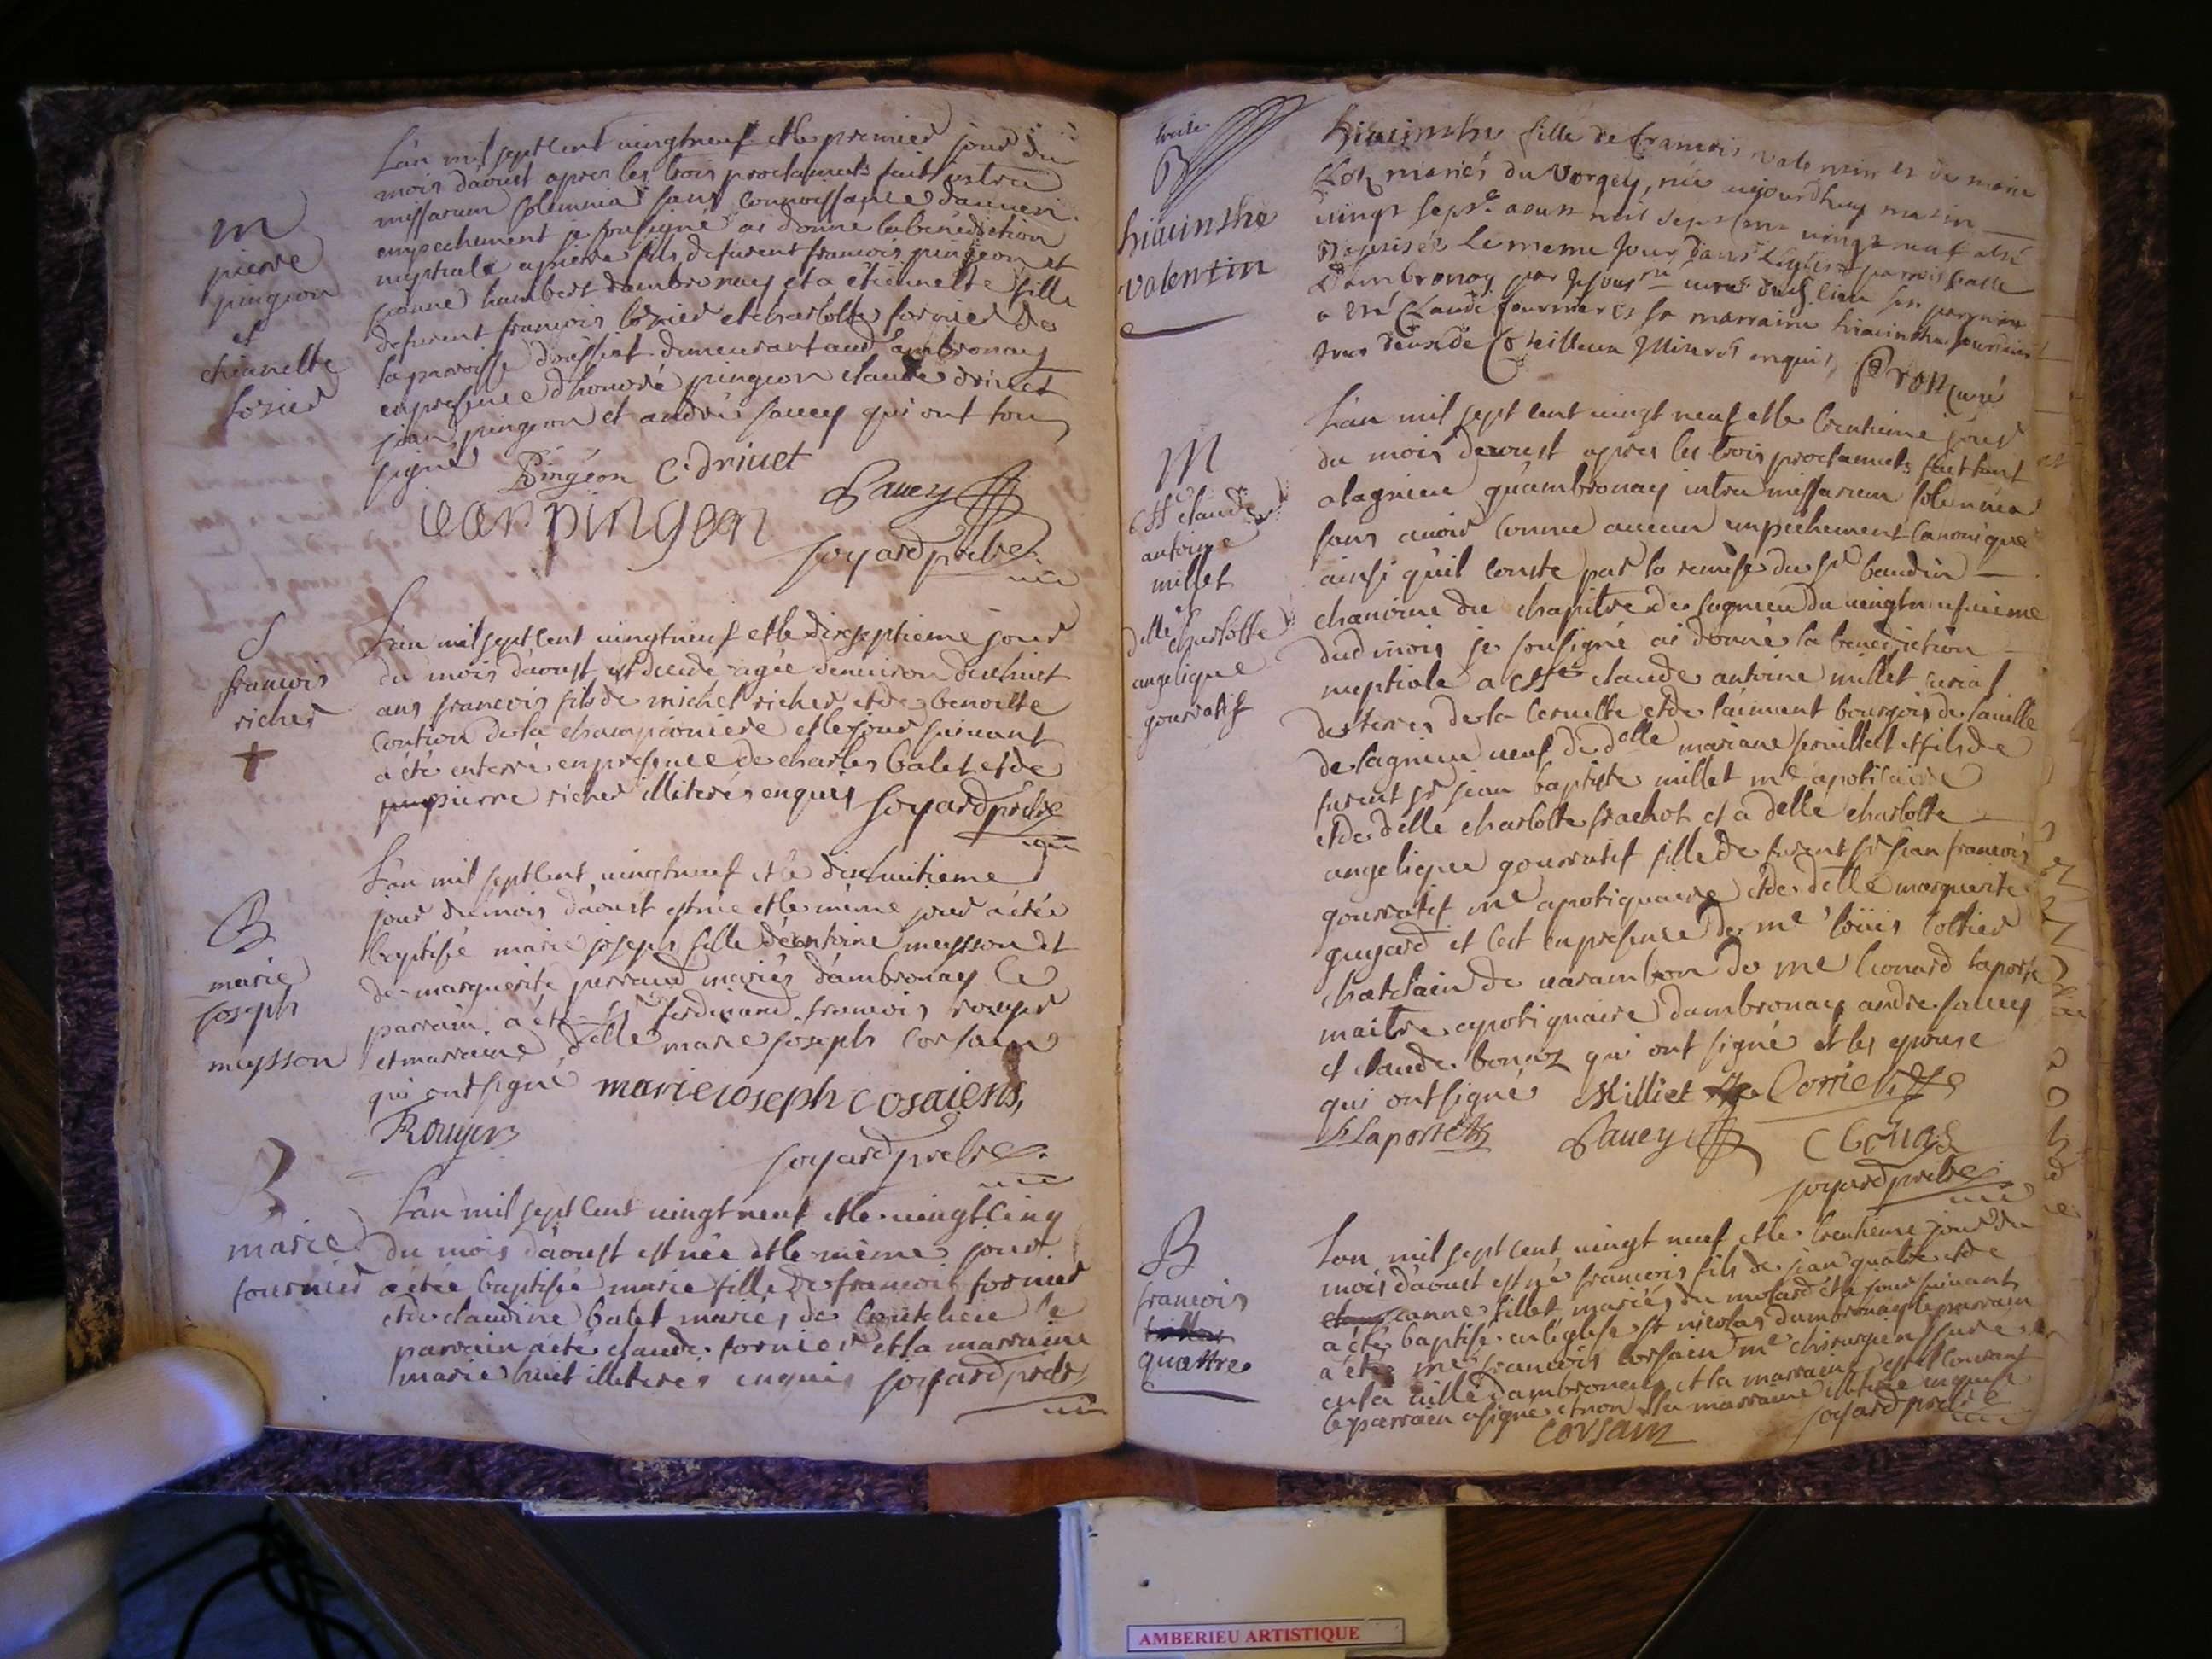 M
pierre
pingeon
et
etiennette
fornier
L'an mil sept cent vingt neuf et le premier jour du
mois d'aoust apres les trois proclamats fait intra
missarum solemnia sans connoissance d'aucun
empechement je sousigné ai donné la bénédiction
nuptiale a pierre fils de furent francois pingeon et
jeanne humbert d'ambronay et a etiennette fille
de furent françois fornier et charlotte fornier de
la paroisse demeurant aud ambronay
en presence d'honoré pingeon claude drivet
jean pingeon et andré sauey qui ont tous
signé
Pingeon C. drivet
Sauey
jean pingeon
joyard prebtre
S
francois
richer
L'an mil sept cent vingt neuf et le dixseptieme jour
du mois d'aoust est decedé agée denviron dixhuict
ans francois fils de michel richer et de benoitte
de la championiere et le jour suivant
a été enterré en presence de charles balet et de
pierre richer illiterés enquis joyard prebtre
B
marie
joseph
meysson
L'an mil sept cent vingt neuf et le dixhuitieme
jour du mois d'aoust est née et le même jour a étée
baptisée marie joseph fille de antoine meysson et
de marguerite perraud mariés d'ambronay le
parrain a été sr ferdinand francois rouyer
et marraine delle marie joseph corsain
qui ont signé marie ioseph cosaiens,
Rouyer
joyard prebtre
B
marie
fournier
L'an mil sept cent vingt neuf et le vingt cinq
du mois d'aoust est née et le même jour
a étée baptisée marie fille de francois fornier
et de claudine balet mariés de le
parrain a été claude fornier et la marraine
marie huit illiterés enquis joyard prebtre
B
hiacinthe
valentin
hiacinthe fille de francois valentin et de marie
mariés du Vorgey, née aujourdhuy matin
vingt sept e aoust mil sept cent vingt neuf a été
baptisée le meme jour dans l'eglise parroissialle
D'ambronay par je sous né curé dud lieu son parrain
a été Claude fournier et sa marraine hiacinthe
tous deux de illiterés enquis, curé
M
claude
antoine
millet
et
delle charlotte
angelique
gourratif
L'an mil sept cent vingt neuf et le trentieme jour
du mois d'aoust apres les trois proclamats fait tant
a lagnieu qu'ambronay intra missarum solemnia
sans avoir connu aucun empechement canonique
ainsi qu'il conste par la remise du sr baudin
chanoine du chapitre de lagnieu du vingt neufvieme
dud mois je sousigné ai donné la benediction
nuptiale a claude antoine millet
des terres de la et de bourgois de la ville
de lagnieu veuf de delle mariane et fils de
furent sr jean baptiste millet me apoticaire
et de delle charlotte frachot et a delle charlotte
angelique gourratif fille de furent sr jean francois
gourratif me apotiquaire et de delle marguerite
guyard et cet en presence de me loüis
chatelain de varambon de me leonard laporte
maitre apotiquaire d'ambronay andre sauey
et claude bonaz qui ont signé et les epouse
qui ont signé Milliet
Laporte Sauey C bonas
joyard prebtre
B
francois
quattre
L'an mil sept cent vingt neuf et le trentieme jour du
mois d'aoust est né francois fils de jean quatre et de
anne fillet mariés du molard et le jour suivant
a été baptisé en l'eglise st nicolas d'ambronay le parrain
a été me francois corsain me chirurgien juré
en la ville d'ambronay et la marraine
le parrain a signé et non la marraine illiterée enquise
corsain joyard prebtre
AMBERIEU ARTISTIQUE